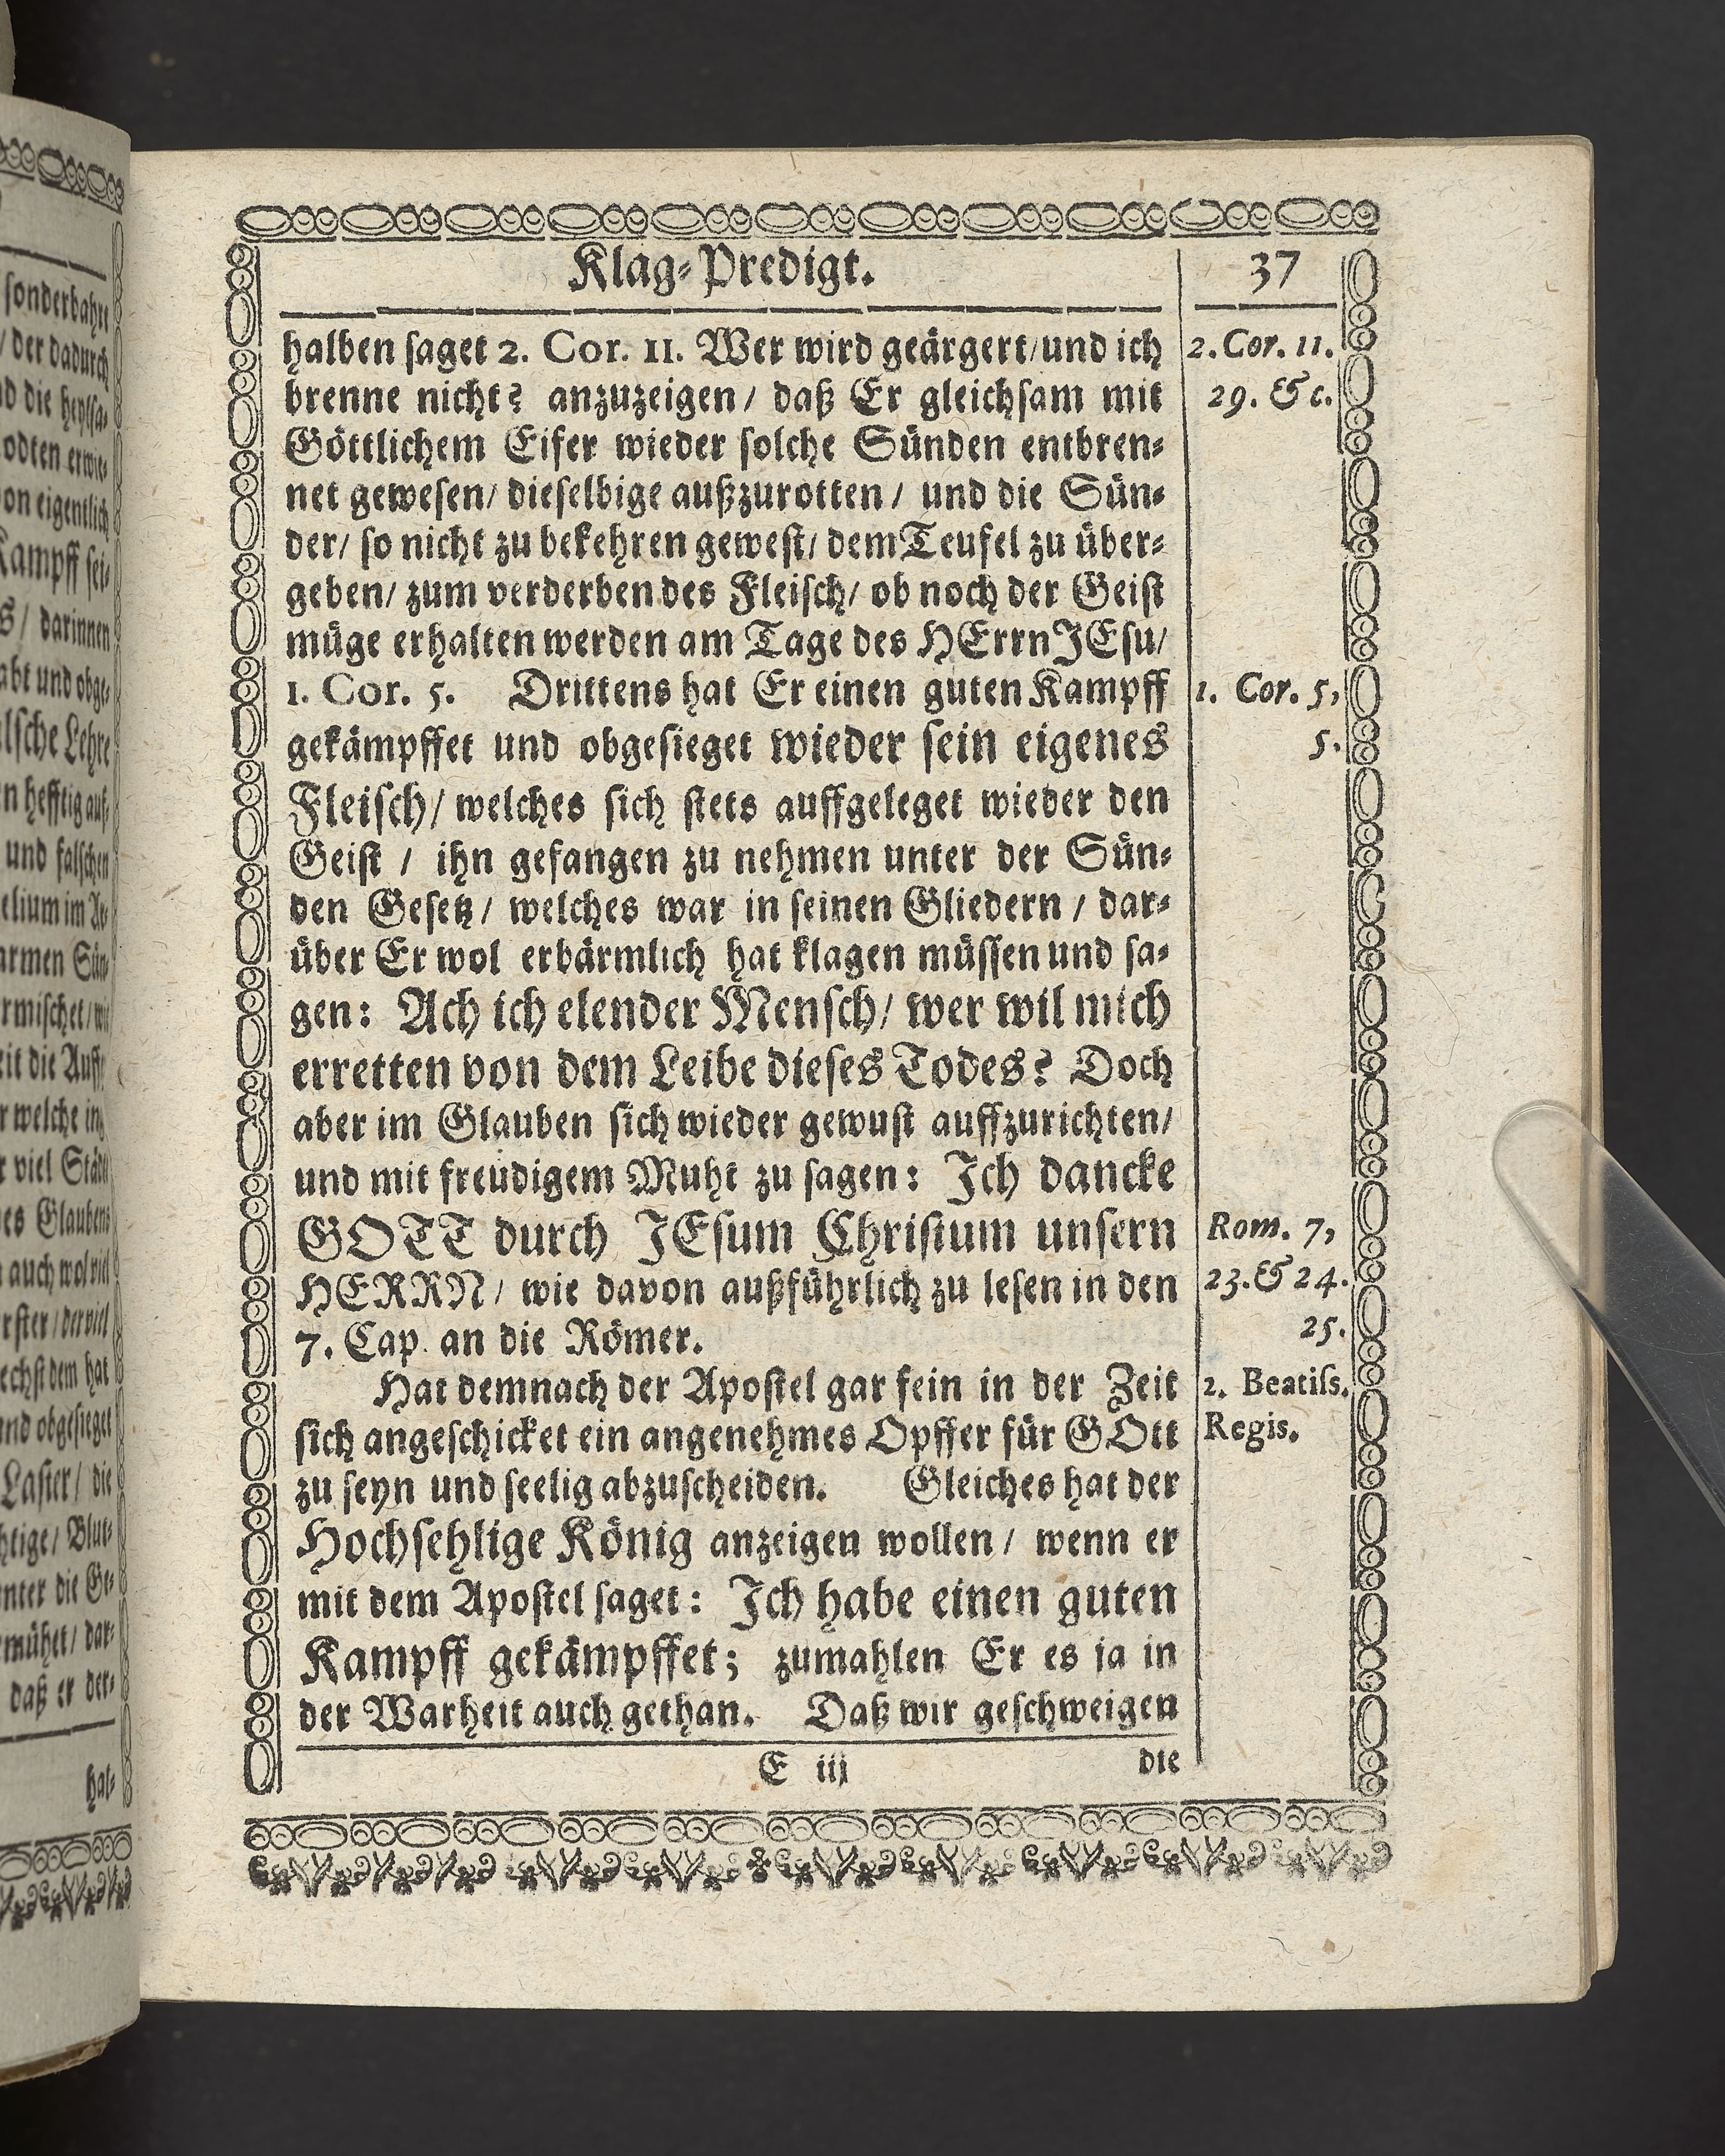 Klag-Predigt.
37
halben saget 2. Cor. 11. Wer wird geärgert/und ich
brenne nicht? anzuzeigen/ daß Er gleichsam mit
Göttlichem Eifer wieder solche Sünden entbren-
net gewesen/ dieselbige außzurotten/ und die Sün-
der/ so nicht zu bekehren gewest/ dem Teufel zu über-
geben/ zum verderben des Fleisch/ ob noch der Geist
müge erhalten werden am Tage des HErrn JEsu/
1. Cor. 5. Drittens hat Er einen guten Kampff
gekämpffet und obgesieget wieder sein eigenes
Fleisch/ welches sich stets auffgeleget wieder den
Geist / ihn gefangen zu nehmen unter der Sün-
den Gesetz/ welches war in seinen Gliedern / dar-
über Er wol erbärmlich hat klagen müssen und sa-
gen: Ach ich elender Mensch/ wer wil mich
erretten von dem Leibe dieses Todes? Doch
aber im Glauben sich wieder gewust auffzurichten/
und mit freüdigem Muht zu sagen: Ich dancke
GOTT durch JEsum Christum unsern
HERRN/ wie davon außführlich zu lesen in den
7. Cap. an die Römer.
Hat demnach der Apostel gar fein in der Zeit
sich angeschicket ein angenehmes Opffer für GOtt
zu seyn und seelig abzuscheiden. Gleiches hat der
Hochsehlige König anzeigen wollen/ wenn er
mit dem Apostel saget: Ich habe einen guten
Kampff gekämpffet; zumahlen Er es ja in
der Warheit auch gethan. Daß wir geschweigen
E iij
die
2. Cor. 11.
29. & c.
1. Cor. 5,
5.
Rom. 7,
23. & 24.
25.
2. Beatiss.
Regis.
sonderbahre
/ der dadurch
von eigentlich
Kampff sei-
/ darinnen
und obge-
Lehre
hefftig auf-
und falschen
armen Sün-
die Auff-
welche in
viel Städt
Glaubens
auch wol viel
dem hat
und obgesieget
Laster/ die
Blut-
unter die Ge-
dar-
daß er der-
hal-